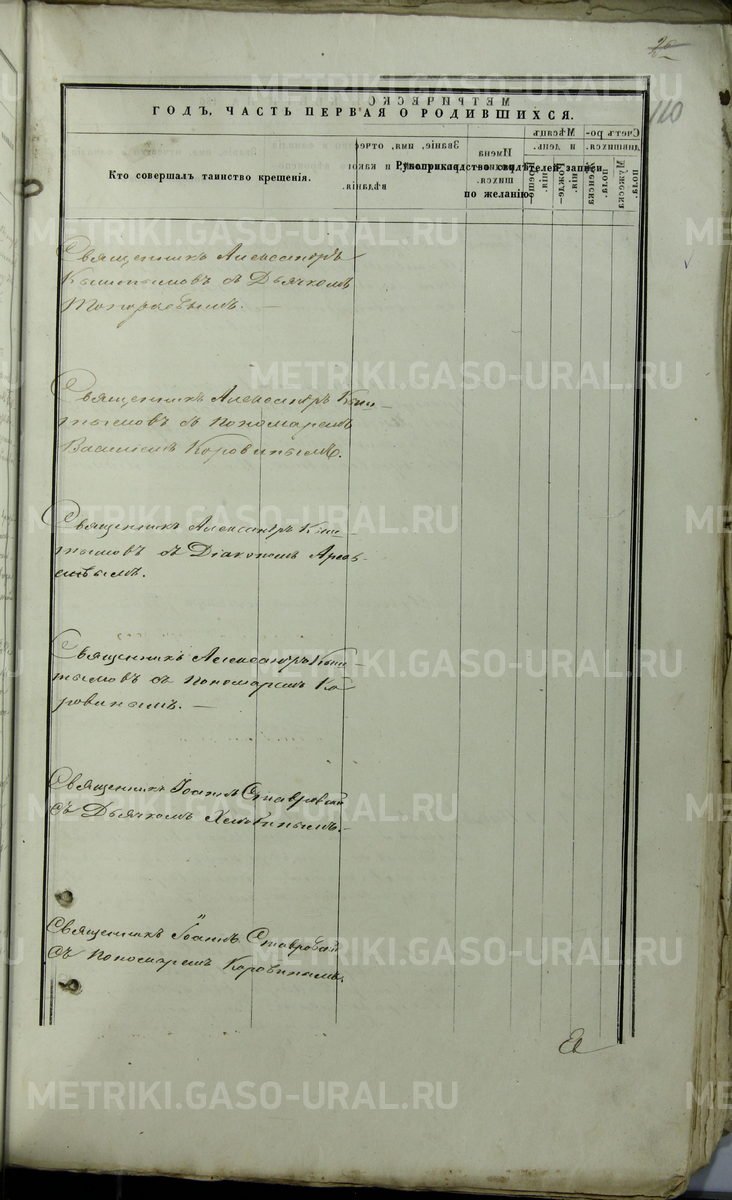 110
ГОДЪ, ЧАСТЬ ПЕРВАЯ О РОДИВШИХСЯ.
Кто совершалъ таинство крещенія.
Рукоприкладство свидѣтелей записи
по желанію.
Священникъ Александръ
Кыштымовъ съ Дьячкомъ
Топорковымъ. —
Священникъ Александръ Кыш-
тымовъ съ пономаремъ
Василіемъ Коровинымъ.
Священникъ Александръ Кыш-
тымовъ съ Діакономъ
Священникъ Александръ Кыш-
тымовъ съ пономаремъ Ко-
ровинымъ. —
Священникъ Іоаннъ Ставровскій
съ Дьячкомъ
Священникъ Іоаннъ Ставровскій
съ пономаремъ Коровинымъ.
METRIKI.GASO-URAL.RU